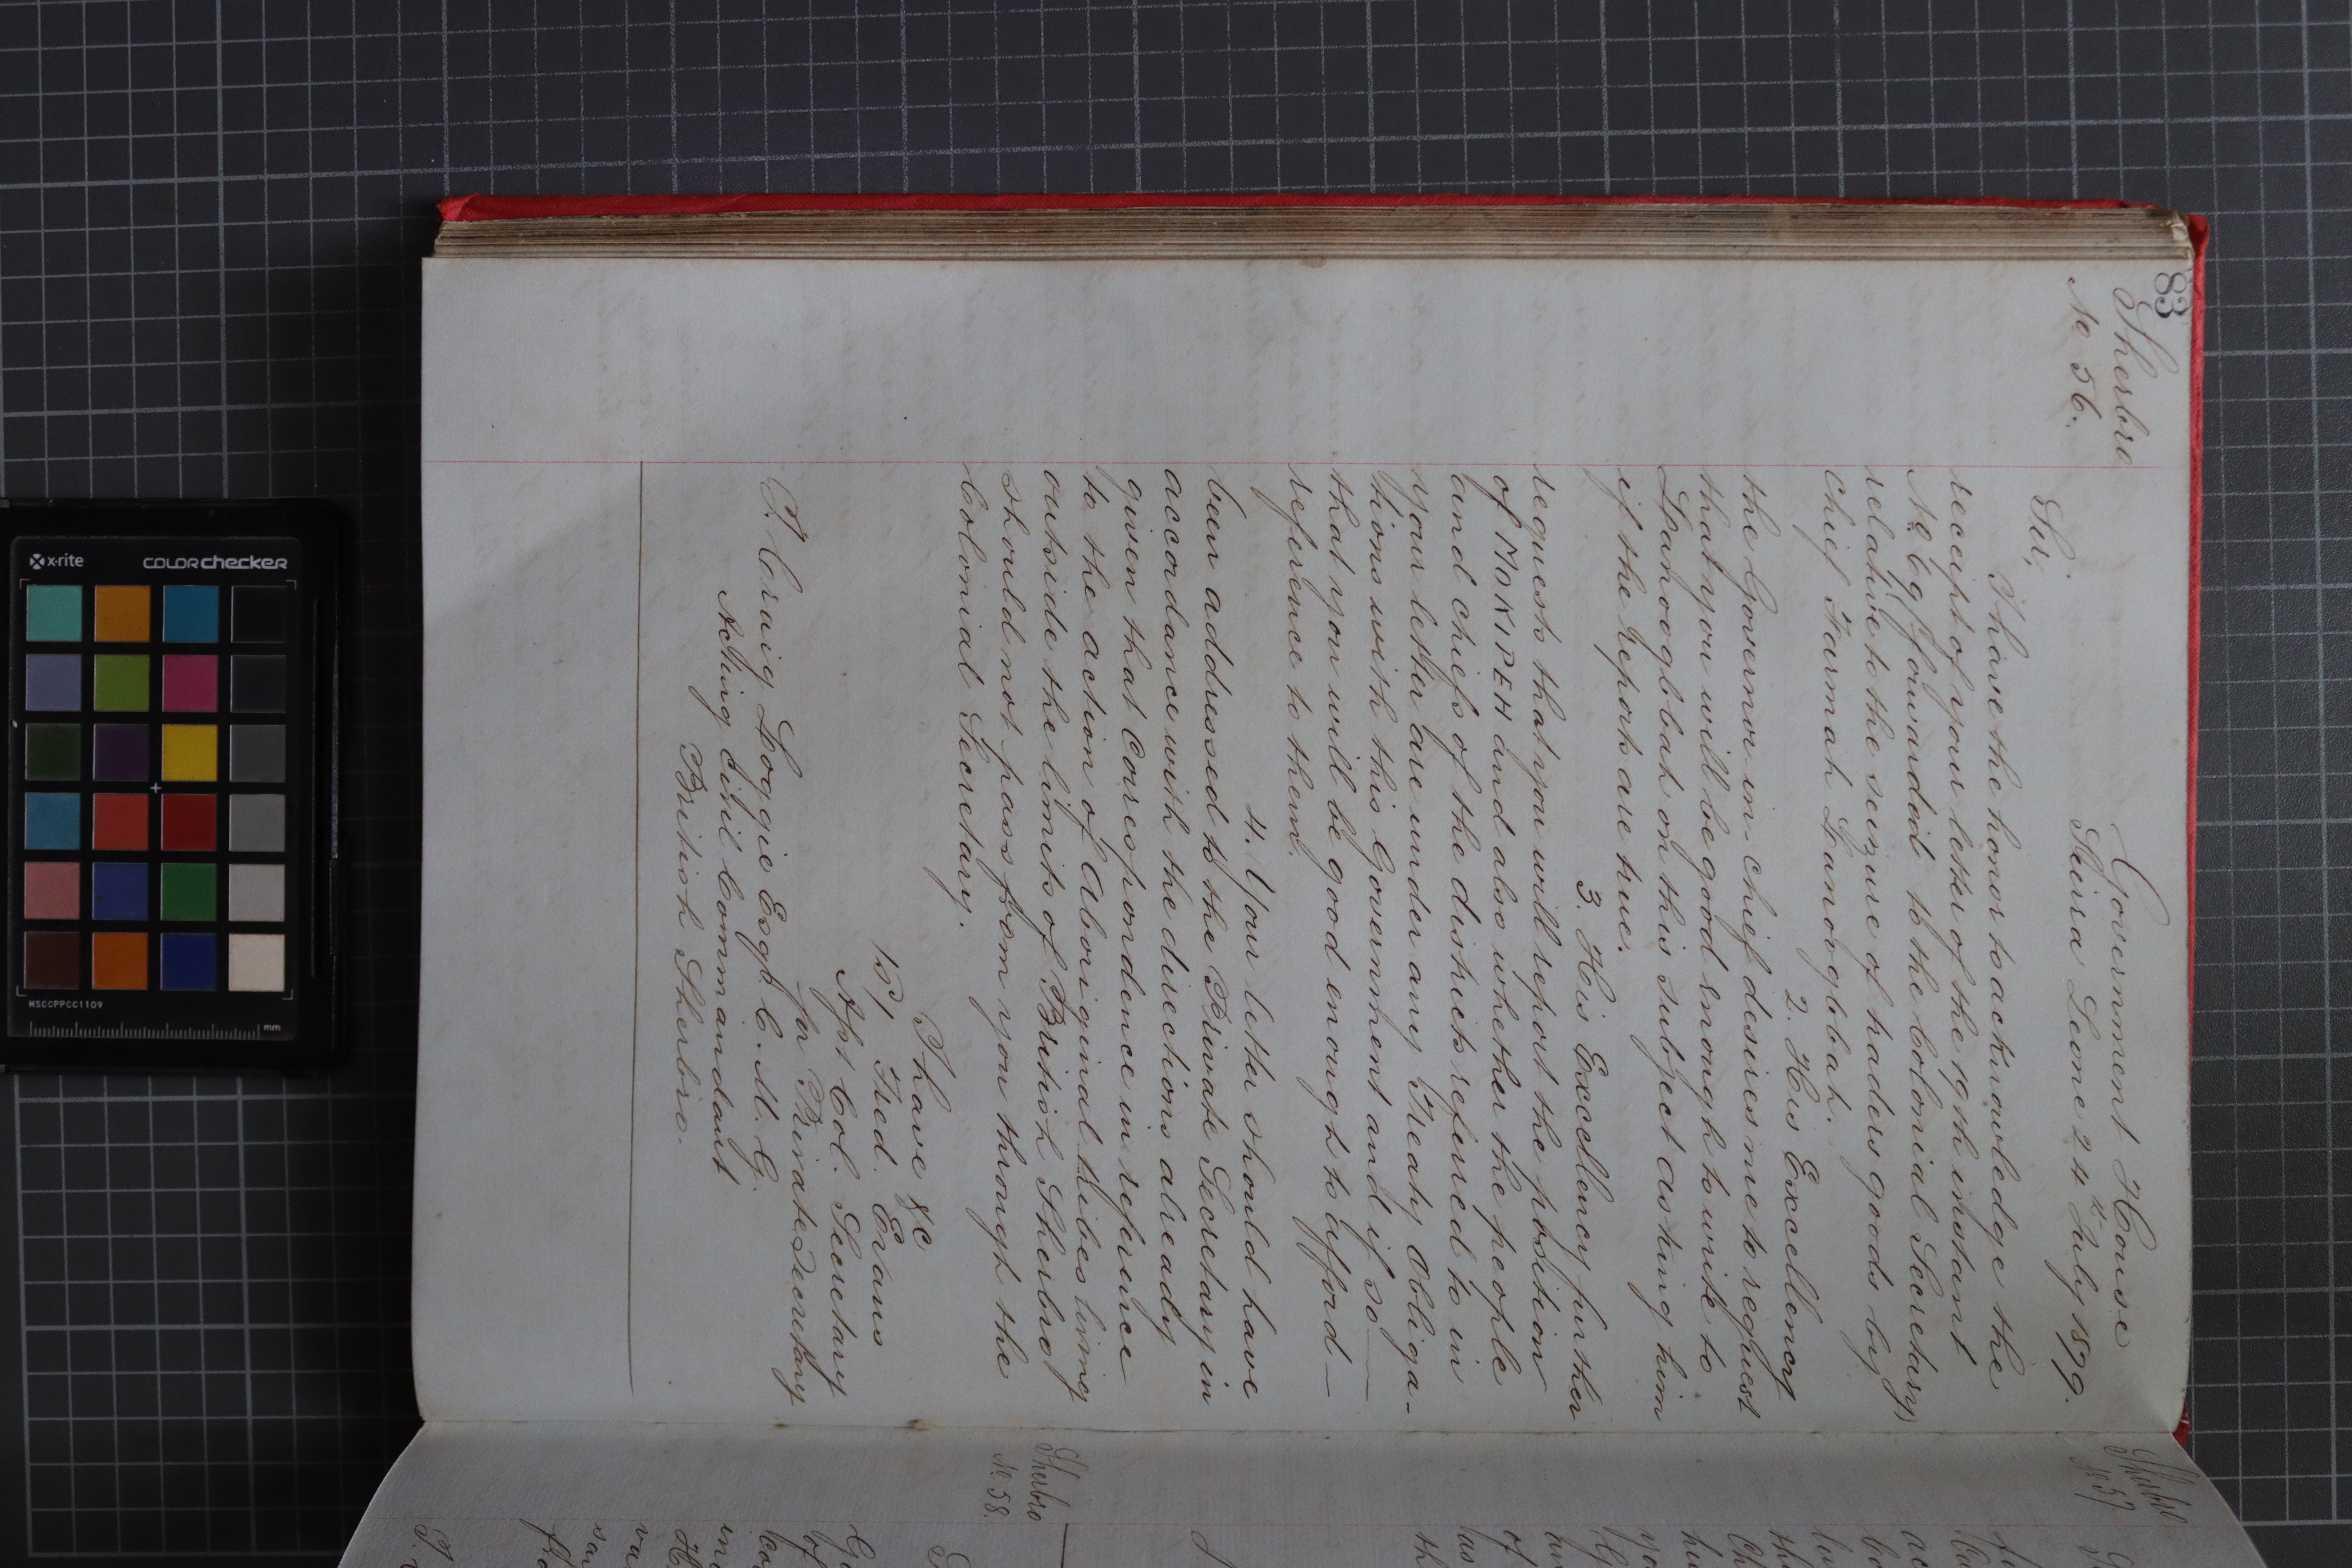 83
Sherbro
No 56.
Government House
Sierra Leone 24th July 1879.
Sir,
I have the honor to acknowledge the
receipt of your letter of the 19th instant
No. (forwarded to the Colonial Secretary)
relative to the seizure of traders goods by
chief Furmah
2. His Excellency
the Governor-in-chief desires me to request
that you will be good enough to write to
on this subject asking him
if the reports are true.
3. His Excellency further
requests that you will report the position
of MOKIPEH and also whether the people
and chiefs of the districts referred to in
your letter are under any Treaty obliga-
tions with this Government and if so —
that you will be good enough to afford —
reference to them.
4. Your letter should have
been addressed to the Private Secretary in
accordance with the directions already
given that Correspondence in reference
to the action of Aboriginal tribes living
outside the limits of British Sherbro
should not pass from you through the
Colonial Secretary.
I have &c
Fred. Evans
Asst Col. Secretary
for Private Secretary
T. Craig Loggie Esqr. C.M.G.
Acting Civil Commandant
British Sherbro.
Sherbro
No 57
Sherbro
No. 58.
x-rite
colorchecker
MSCCPPCC1109
mm